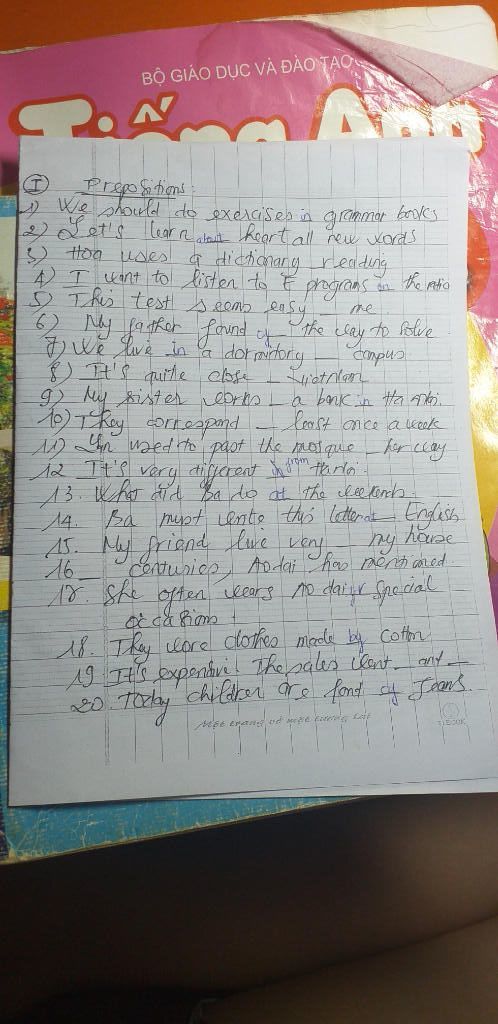 BỘ GIÁO DỤC VÀ ĐÀO TẠO
Tiếng Anh
I Prepositions:
1) We should do exercises in grammar books
2) Let's learn about heart all new words
3) Hoa uses a dictionary _ reading
4) I want to listen to E programs on the ratio
5) This test seems easy _ me
6) My father found of _ the way to solve
7) We live in a dormitory _ campus
8) It's quite close _ VietNam
9) My sister works _ a bank in Ha Noi.
10) They correspond _ least once a week
11) Lan used to past the mosque _ her way
12 It's very different from Ha Noi.
13. What did Ba do at the weekends
14. Ba must write this letter at _ English
15. My friend live very _ my house
16 _ centuries, Aodai has mentioned
17. She often wears Ao dai Special
occasions
18. They wore clothes made by Cotton
19. It's expensive. The sales went _ and _
20. Today children are fond of Jeans.